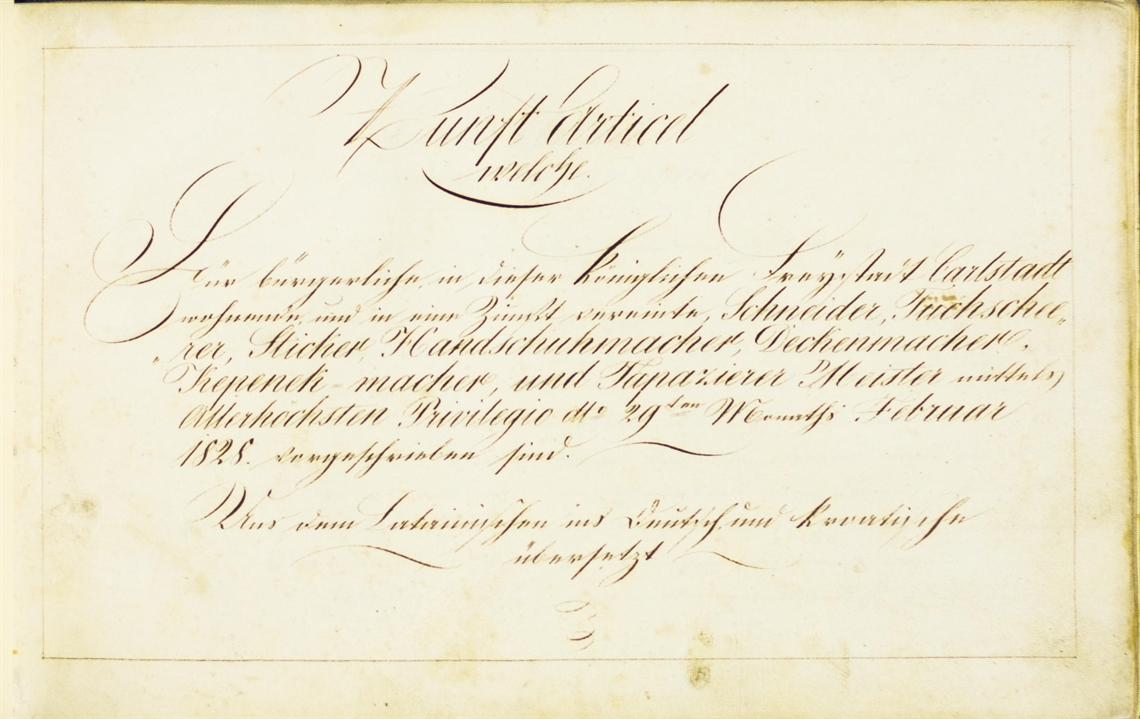 Zunft Articel
welche.
Für bürgerliche, in dieser Königlichen Freystadt Carlstadt
wohnende, und in eine Zunft vereinte, Schneider, Tuchschee„
„rer, Sticker, Handschuhmacher, Deckenmacher,
Kepenek-macher, und Tapazierer Meister mittels
Allerhöchsten Privilegio dto 29ten Monaths Februar
1828. vorgeschrieben sind.
Aus dem Lateinischen ins Deutsch und Kroatische
übersetzt